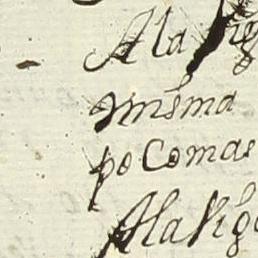 A la
misma
po Comas
A la Vig